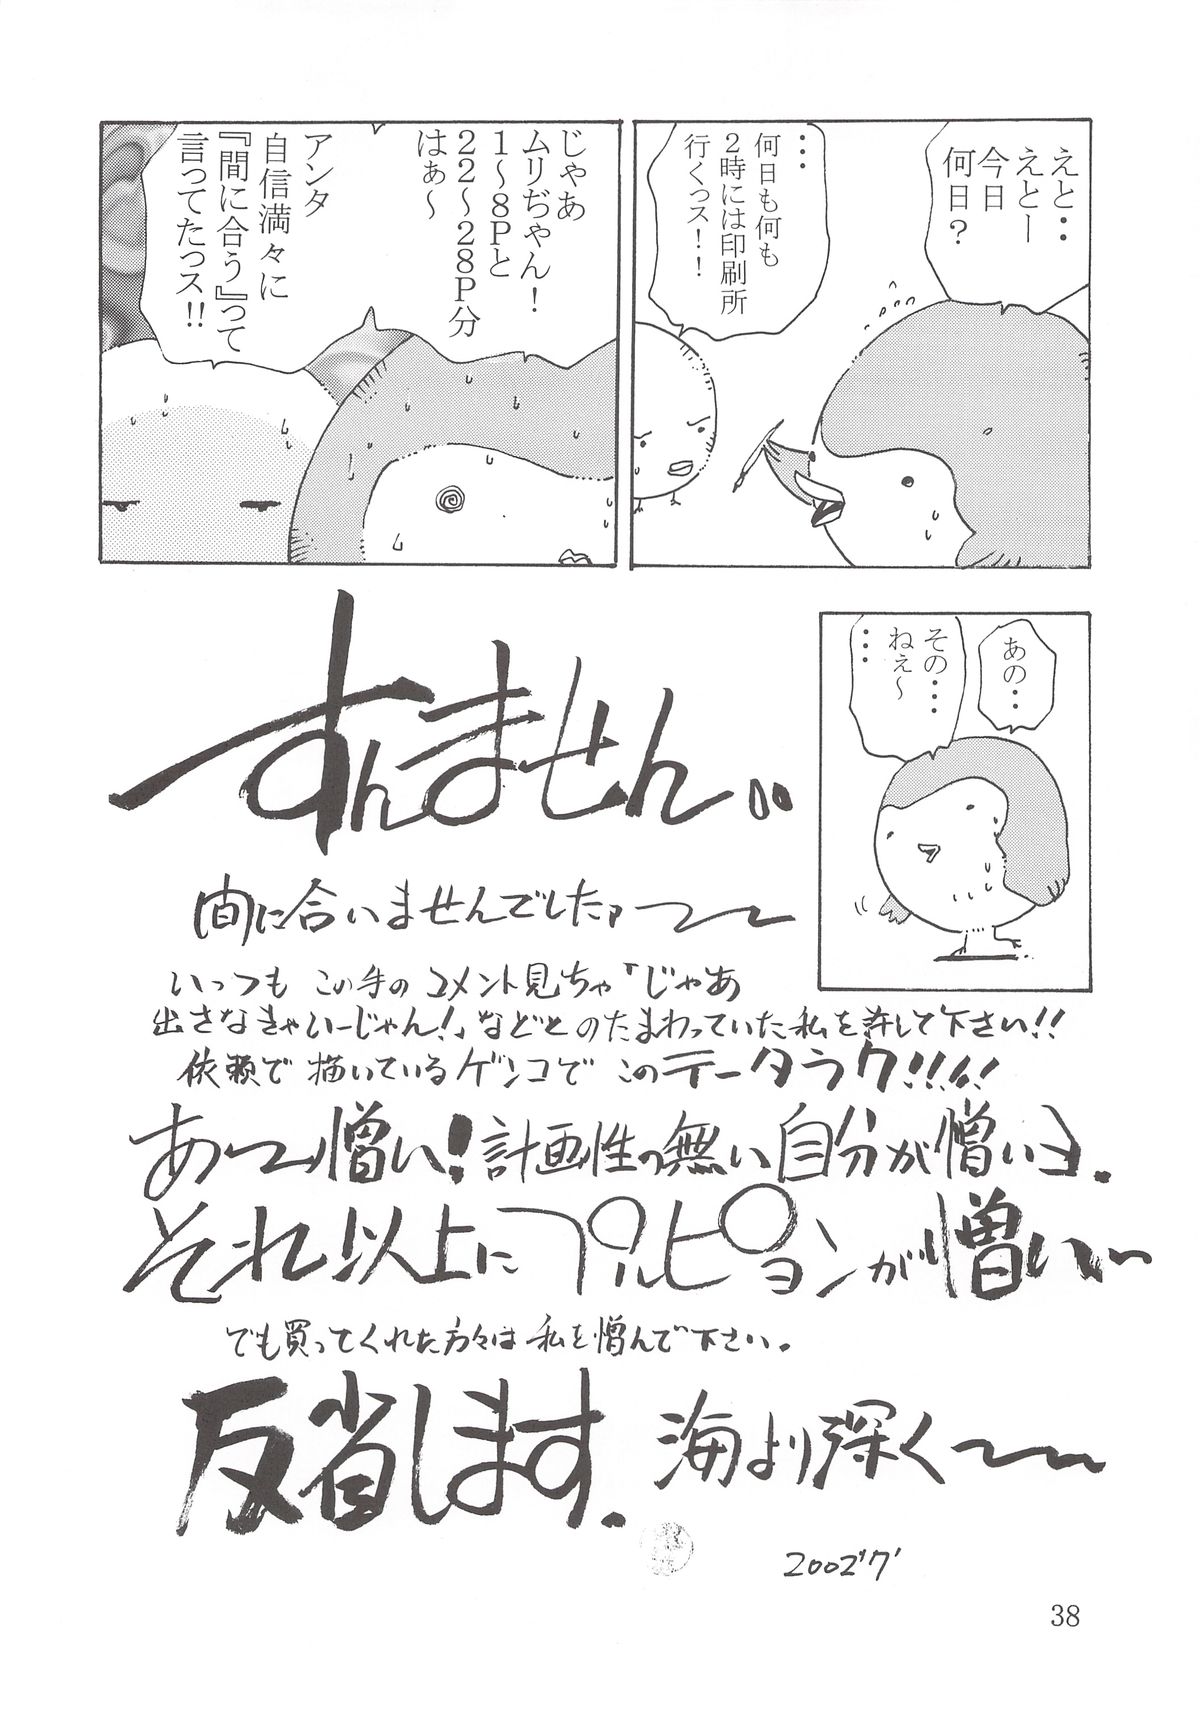 えと・・
えとー
今日
何日？
・・・
何日も何も
２時には印刷所
行くっス！！
じゃあ
ムリぢゃん！
１〜８Ｐと
２２〜２８Ｐ分
はぁ〜
アンタ
自信満々に
『間に合う』って
言ってたっス!!
あの・・
その・・・
ねぇ〜
・・・
すんません
間に合いませんでした
いつも この手の コメント見ちゃ「じゃあ
出さなきゃいーじゃん!」などと のたまわっていた 私を許して下さい!!
依頼で 描いているゲンコで このテータラク!!!!
あー憎い!計画性の無い自分が憎いヨ.
それ以上に プルピョンが憎い〜
でも買ってくれた方々は 私を憎んで下さい.
反省します. 海より深く〜
2002'7'
38